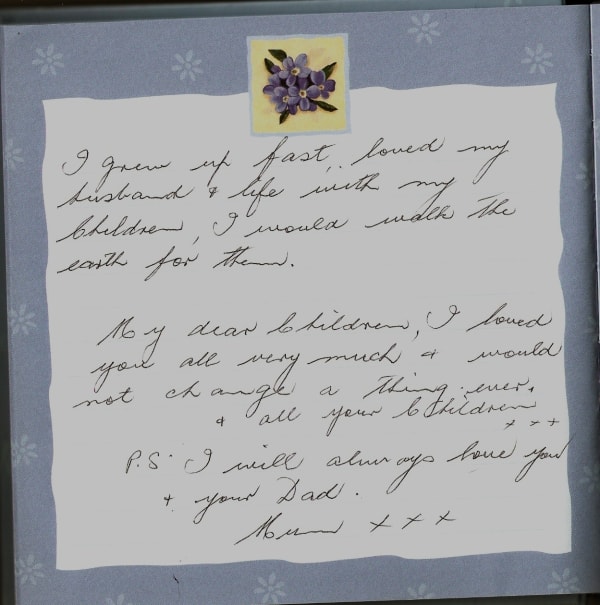 I grew up fast, loved my
husband & life with my
Children, I would walk the
earth for them.
My dear Children, I loved
you all very much & would
not change a thing ever.
& all your Children
x x x
P.S. I will always love you
& your Dad.
Mum x x x